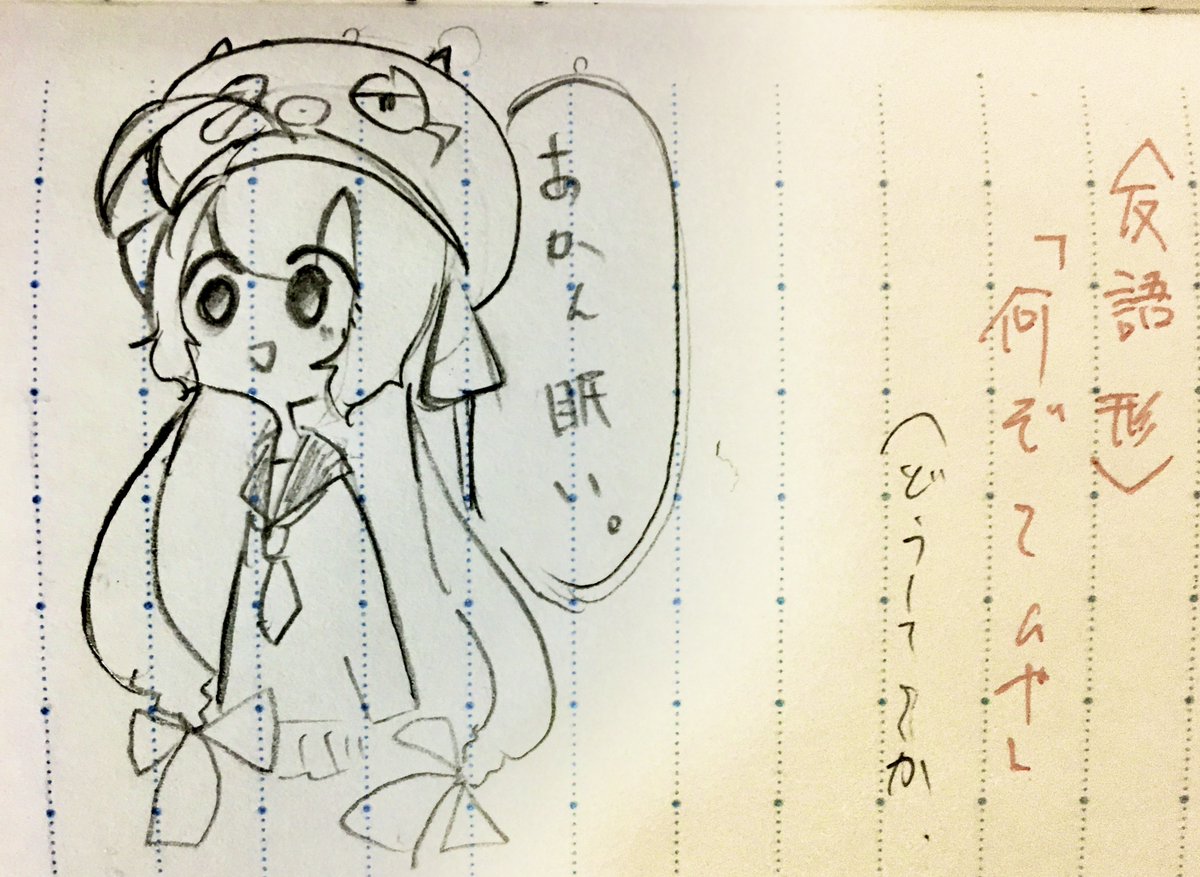 〈反語形〉
「何ぞ〜んや」
(どうして〜か.
あかん眠い。